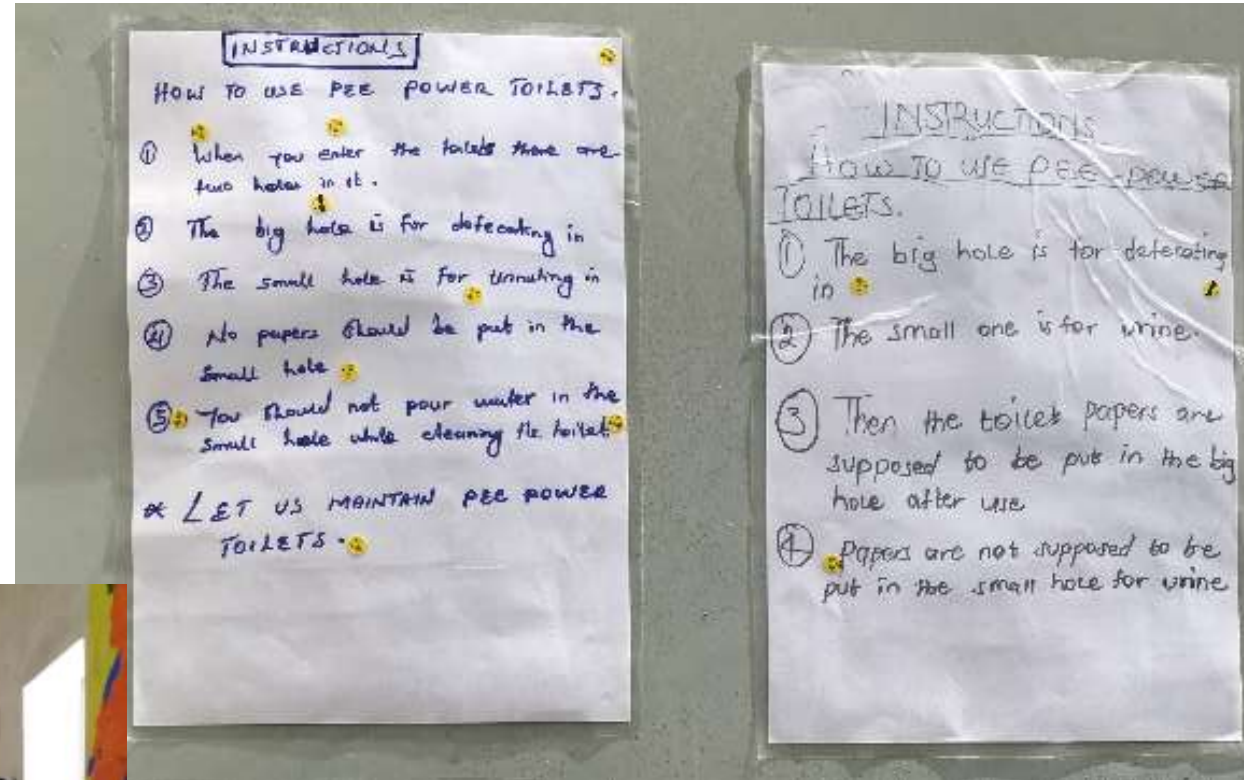 INSTRUCTIONS
HOW TO USE PEE POWER TOILETS.
① When you enter the toilets there are
two holes in it.
② The big hole is for defecating in
③ The small hole is for Urinating in
④ No papers should be put in the
small hole
⑤ You should not pour water in the
small hole while cleaning the toilet
* LET US MAINTAIN PEE POWER
TOILETS.
INSTRUCTIONS
HOW TO USE PEE-POWER
TOILETS.
① The big hole is for defecating
in
② The small one is for urine.
③ Then the toilet papers are
supposed to be put in the big
hole after use
④ Papers are not supposed to be
put in the small hole for urine